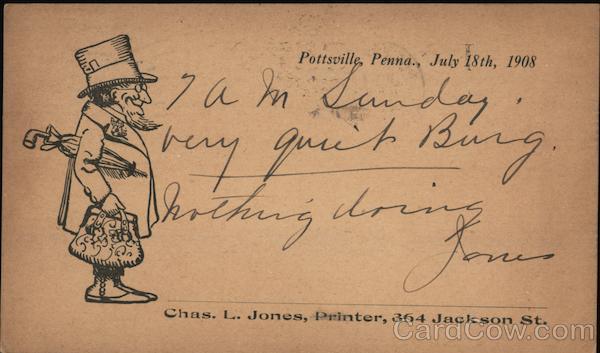 Pottsville, Penna., July 18th, 1908
7 A M Sunday.
very quiet Burg.
Nothing doing
Jones
Chas. L. Jones, Printer, 364 Jackson St.
CardCow.com